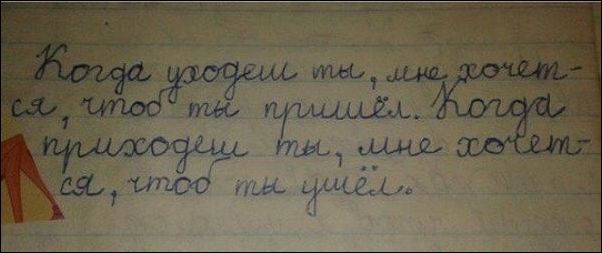 Когда уходеш ты, мне хочет-
ся, чтоб ты пришёл. Когда
приходеш ты, мне хочет-
ся, чтоб ты ушёл.